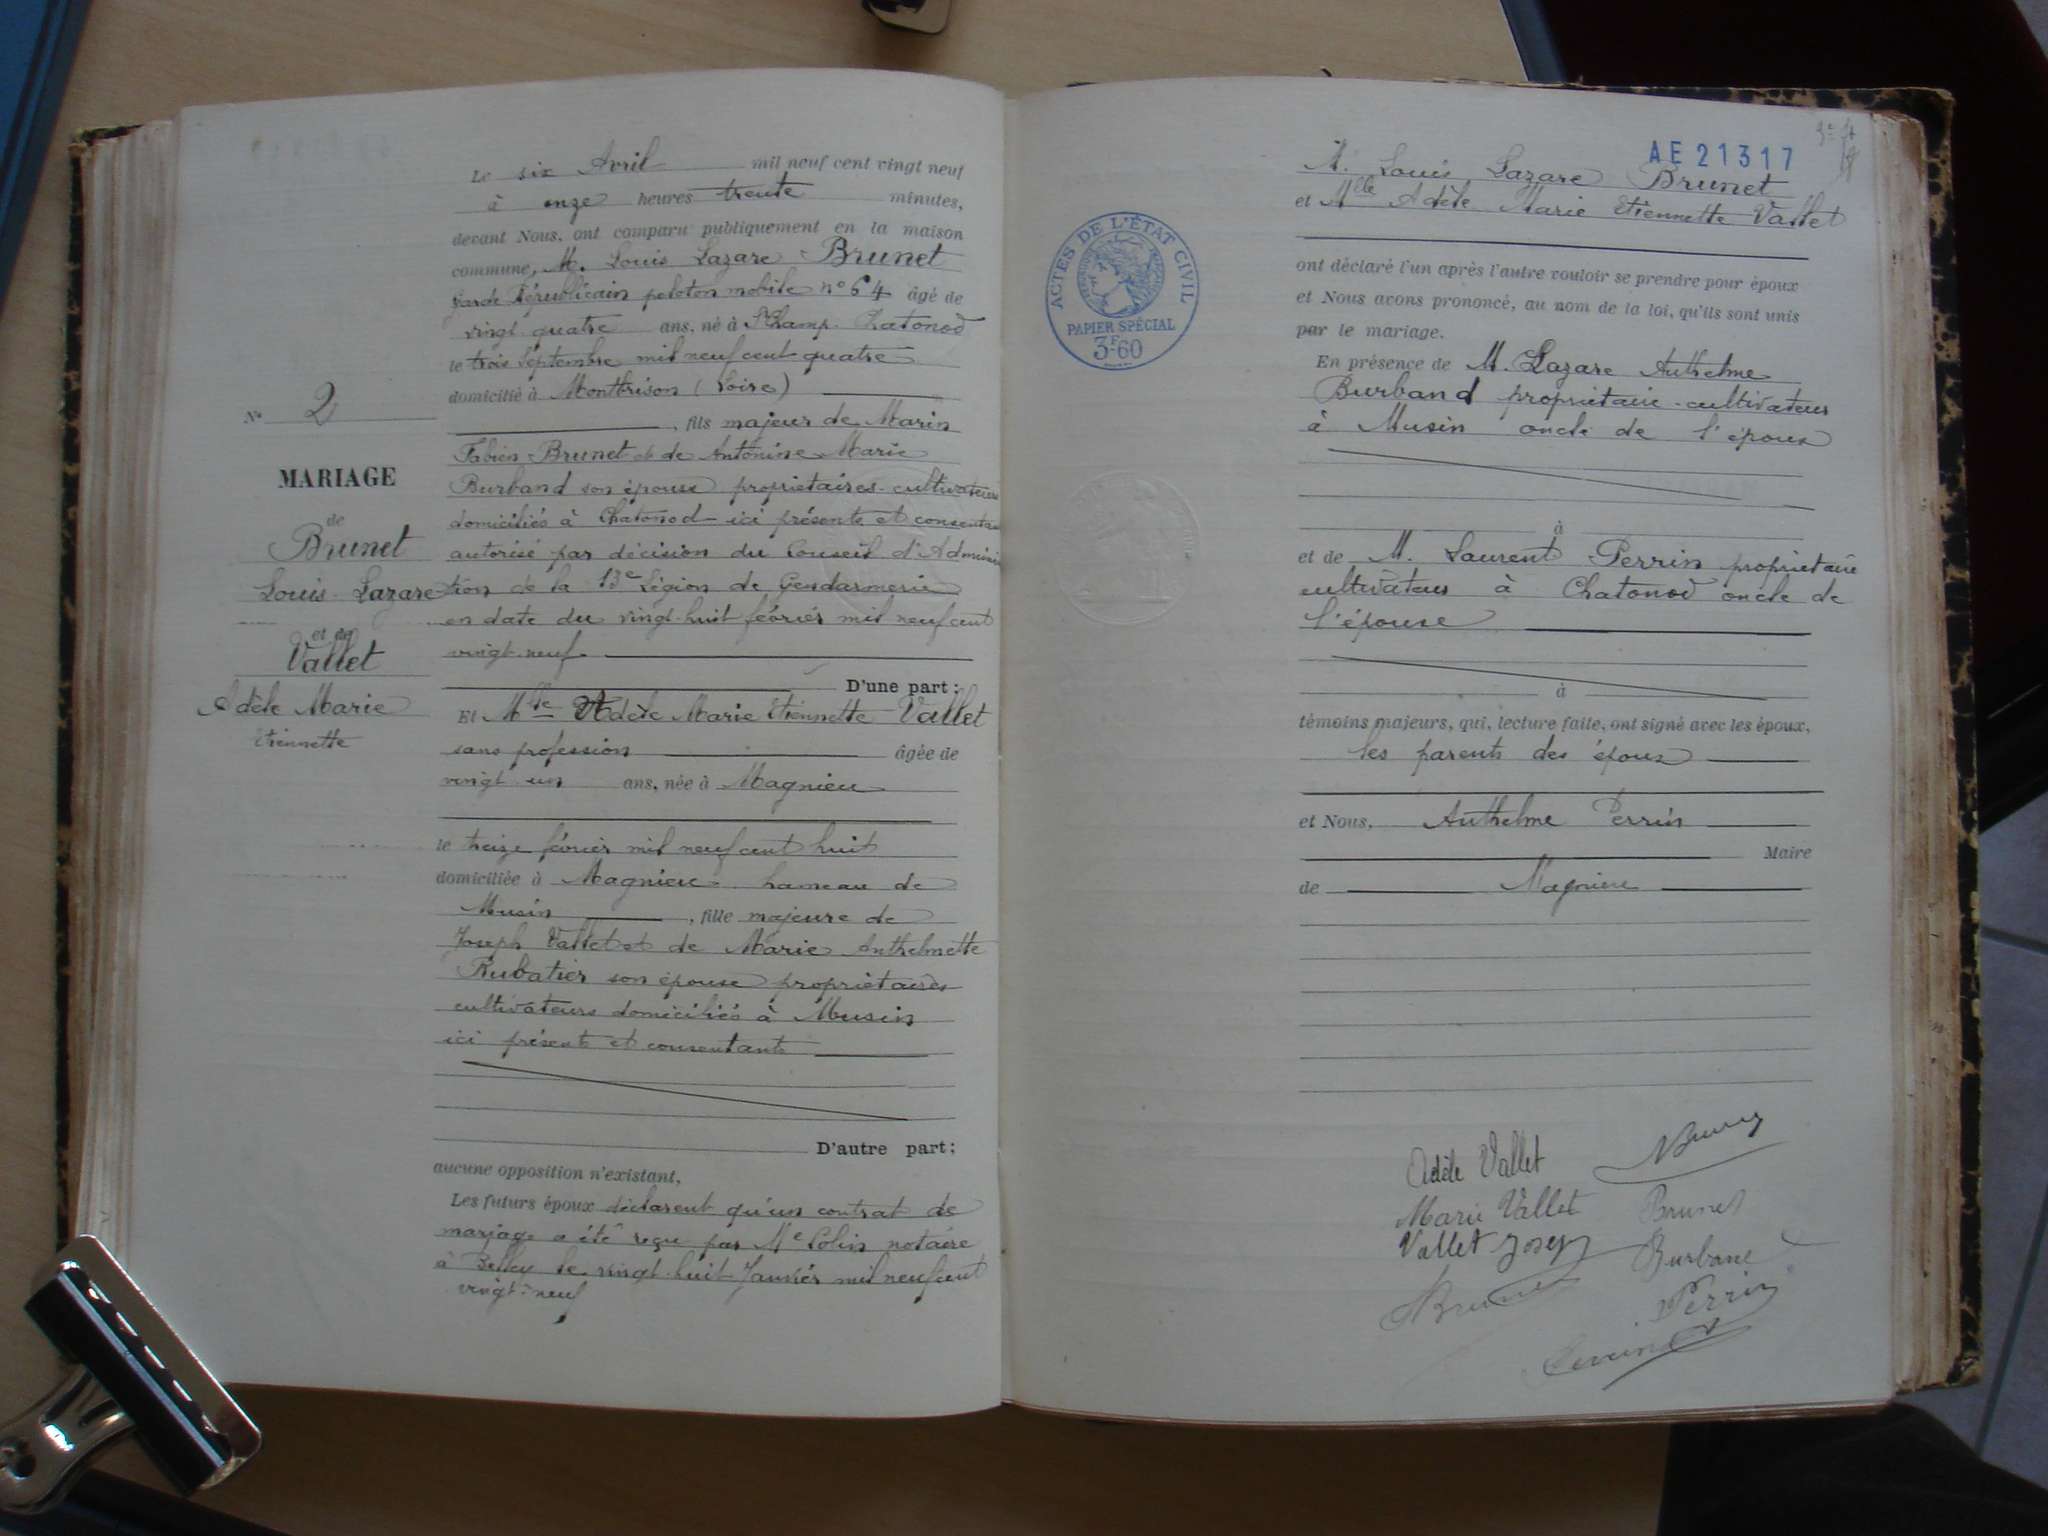 Le six Avril mil neuf cent vingt neuf
à onze heures trente minutes,
devant Nous, ont comparu publiquement en la maison
commune, M. Louis Lazare Brunet
garde Républicain peloton mobile n° 64 âgé de
vingt quatre ans, né à St Champ. Chatonod
le trois Septembre mil neuf cent quatre
domicilié à Montbrison (Loire)
, fils majeur de Marin
Fabien Brunet et de Antonine Marie
Burband son épouse propriétaires-cultivateurs
domiciliés à Chatonod ici présents et consenta
autorisé par décision du Conseil d'Adminis
tion de la 13e Légion de Gendarmerie
en date du vingt-huit février mil neuf cent
vingt-neuf
D'une part:
Et Mlle Adèle Marie Etiennette Vallet
sans profession âgée de
vingt un ans, née à Magnieu
le treize février mil neuf cent huit
domiciliée à Magnieu hameau de
Musin , fille majeure de
Joseph Vallet et de Marie Anthelmette
Rubatier son épouse propriétaires
cultivateurs domiciliés à Musin
ici présents et consentants
D'autre part:
aucune opposition n'existant,
Les futurs époux déclarent qu'un contrat de
mariage a été reçu par Me Colin notaire
à Belley le vingt-huit Janvier mil neuf cent
vingt-neuf
No 2
MARIAGE
de
Brunet
Louis-Lazare
et de
Vallet
Adèle Marie
Etiennette
AE 21317
M. Louis Lazare Brunet
et Mlle Adèle Marie Etiennette Vallet
ACTES DE L'ÉTAT CIVIL
PAPIER SPÉCIAL
3F60
ont déclaré l'un après l'autre vouloir se prendre pour époux
et Nous avons prononcé, au nom de la loi, qu'ils sont unis
par le mariage.
En présence de M. Lazare Anthelme
Burband propriétaire-cultivateur
à Musin oncle de l'époux
à
et de M. Laurent Perrin propriétaire
cultivateur à Chatonod oncle de
l'épouse
à
témoins majeurs, qui, lecture faite, ont signé avec les époux,
les parents des époux
et Nous, Anthelme Perrin
Maire
de Magnieu
Adèle Vallet
Marie Vallet Brunet
Vallet Joseph Burband
Brunet Perrin